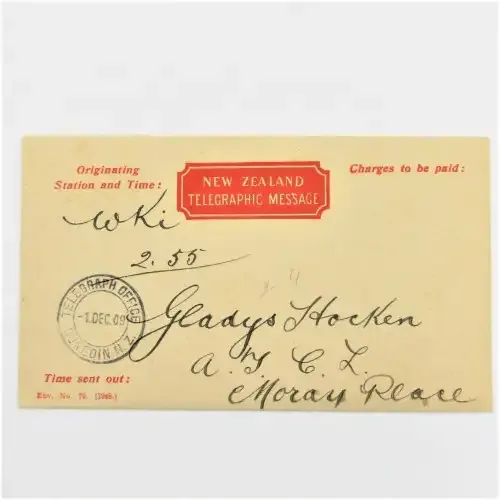 Originating
Station and Time:
NEW ZEALAND
TELEGRAPHIC MESSAGE
Charges to be paid:
WKi
2.55
TELEGRAPH OFFICE
-1.DEC.09
DUNEDIN.N.Z.
Gladys Hocken
A. T. C. L.
Moray Place
Time sent out:
Env. No. 79.